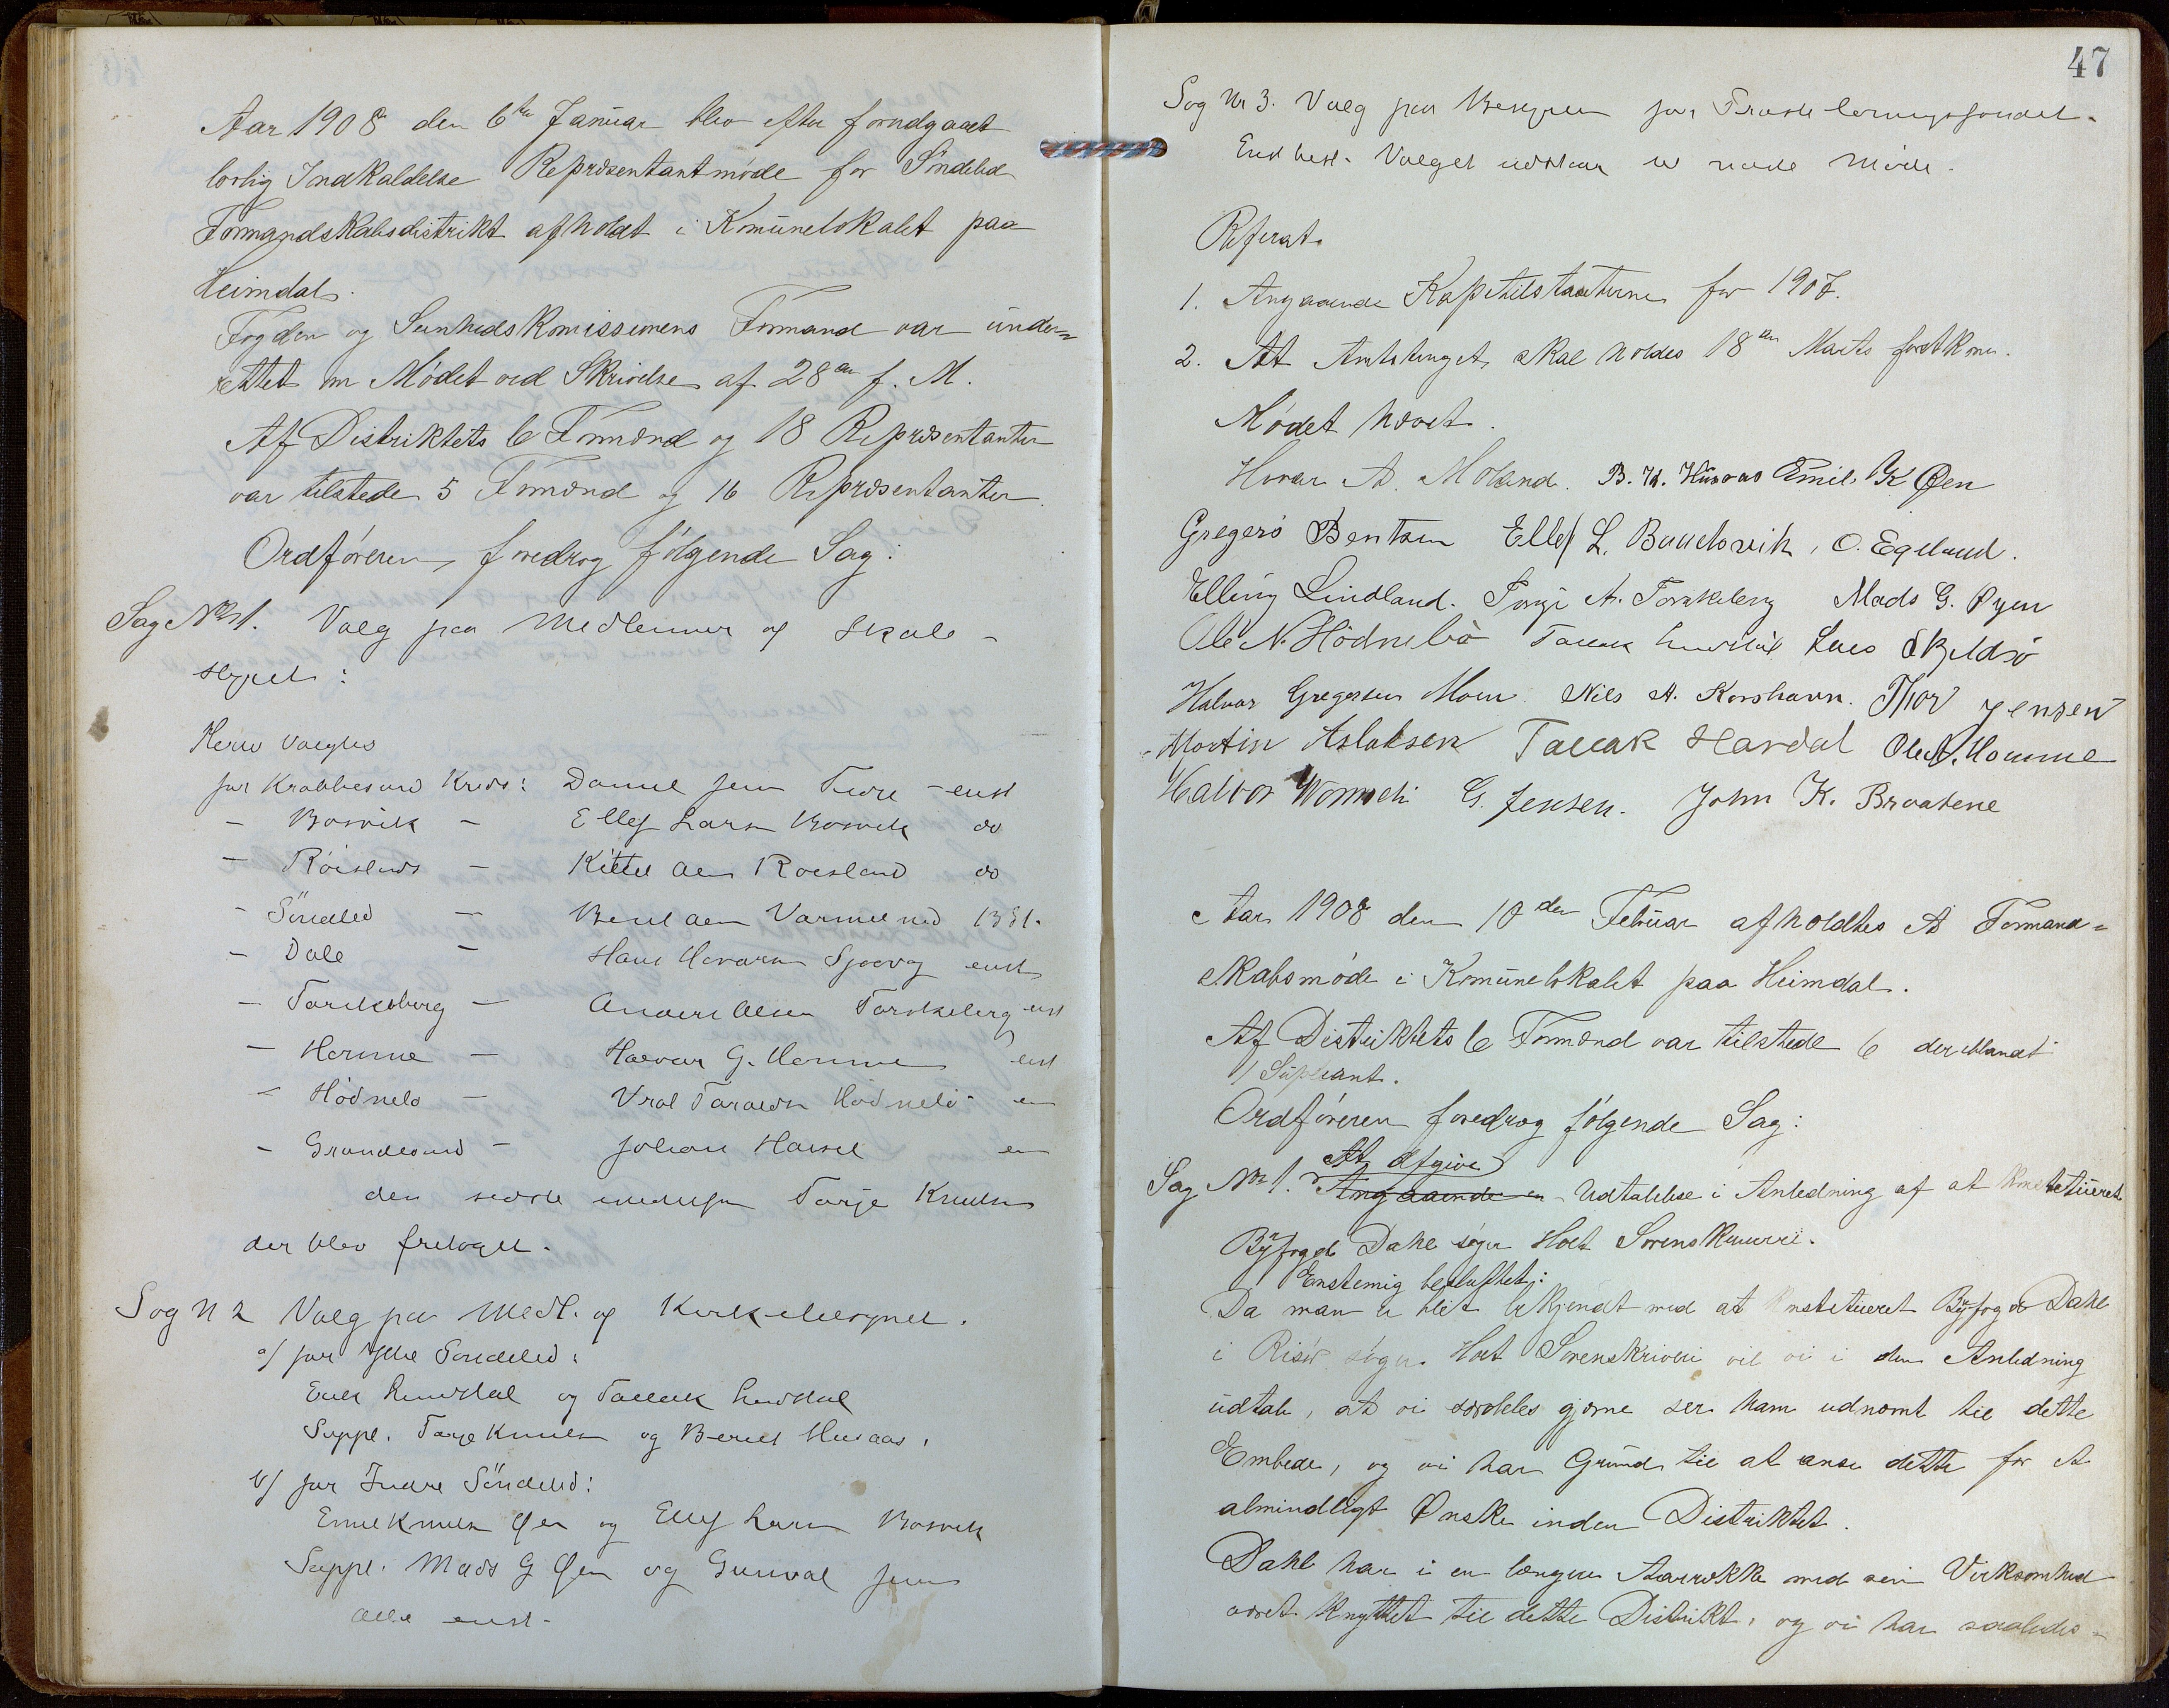 Aar 1908 den 6te Januar blev efter forudgaaet
lovlig Indkaldelse Repræsentantmøde for Søndeled
Formandskabsdistrikt afholdt i Komunelokalet paa
Heimdal.
Fogden og Sunhedskomissionens Formand var under=
rettet om Mødet ved Skrivelse af 28de f. M.
Af Distriktets 6 Formænd og 18 Repræsentanter
var tilstede 5 Formænd og 16 Repræsentanter.
Ordføreren foredrog følgende Sag:
Sag No 1. Valg paa Medlemmer af Skole-
styret:
Herre valgtes
for Krabbesund Kreds: Daniel Jens Fieve - enst
- Bosvik - Ellef Larsen Bosvik do
- Røisland - Kittel Olsen Røisland do
- Søndeled - Bent Olsen Varmelned 13 St.
- Dale - Hans Havorsen Sjøvog enst
- Torskeberg - Anders Olsen Torskeberg enst
- Homme - Halvor G. Homme enst
- Hødnebø - Vrol Taraldsen Hødnebø en
- Grandesund - Johan Hansen en
den sidste Tarje Knudsen
der blev fretaget.
Sag N 2 Valg paa Medl. af Kirketilsynet.
a/ for Ytre Søndeled:
Erik Lindstøl og Tallak Lindstøl
Suppl. Tarje Knudsen og Berulf Husaas.
b/ for Indre Søndeled:
Emil Knudsen Øen og Ellef Larsen Bosvik
Suppl. Mads G Øen og Gunvald Jens
alle enst-
47
Sag Nr 3. Valg paa Bestyrelse for
Enst best. Valget udstaar til næste Møde.
Referat.
1. Angaaende Kapitelstaxterne for 1907.
2. At Amtstinget skal holdes 18de Marts førstkom.
Mødet hævet.
Havor A. Moland. B. K. Husaas Emil K Øen
Gregers Bentsen Ellef L. Baudsvik, O. Egeland.
Elling Lindland. Torge A. Torskeberg Mads G. Øyen
Ole N. Hødnebø Tallak Lindstøl Lars Skjeldsø
Halvor Gregersen Moen Nils A. Korshavn. Thor Jensen
Martin Aslaksen Tallak Hardal Ole A. Homme
Halvor Wormeli G. Jensen. John K. Braatene
Aar 1908 den 10den Februar afholdtes et Formand=
skabsmøde i Komunelokalet paa Heimdal.
Af Distriktets 6 Formænd var tilstede 6 deriblandt
1 Supleant.
Ordføreren foredrog følgende Sag:
At afgive
Sag No 1. Angaaende en Udtalelse i Anledning af at konstitueret
Byfoged Dahl søger Holt Sorenskriveri.
Enstemig besluttet:
Da man er blit bekjendt med at konstitueret Byfoged Dahl
i Risør søger Holt Sorenskriveri vil vi i den Anledning
udtale, at vi særdeles gjerne ser ham udnævnt til dette
Embede, og vi har Grund til at anse dette for et
almindeligt Ønske inden Distriktet.
Dahl har i en længere Aarrække med sin Virksomhed
været knyttet til dette Distrikt, og vi har saaledes-